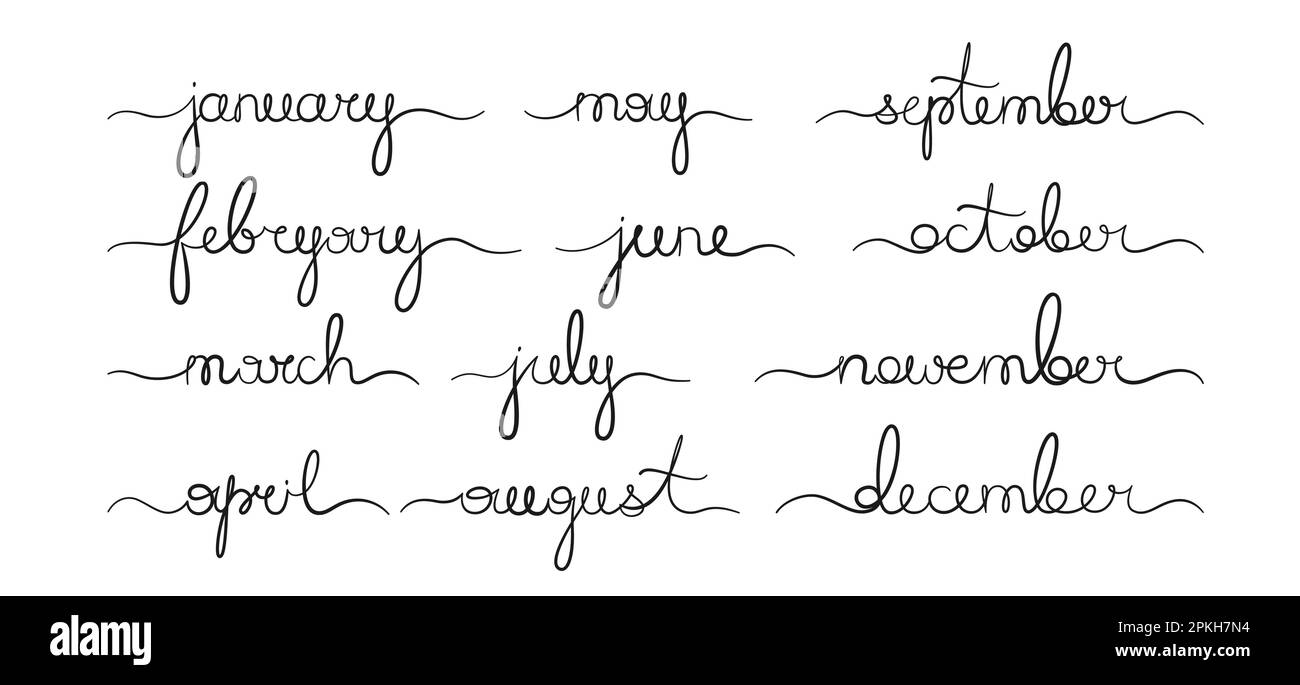 january may september
febryary june october
march july november
april august december
alamy
a
alamy
Image ID: 2PKH7N4
www.alamy.com